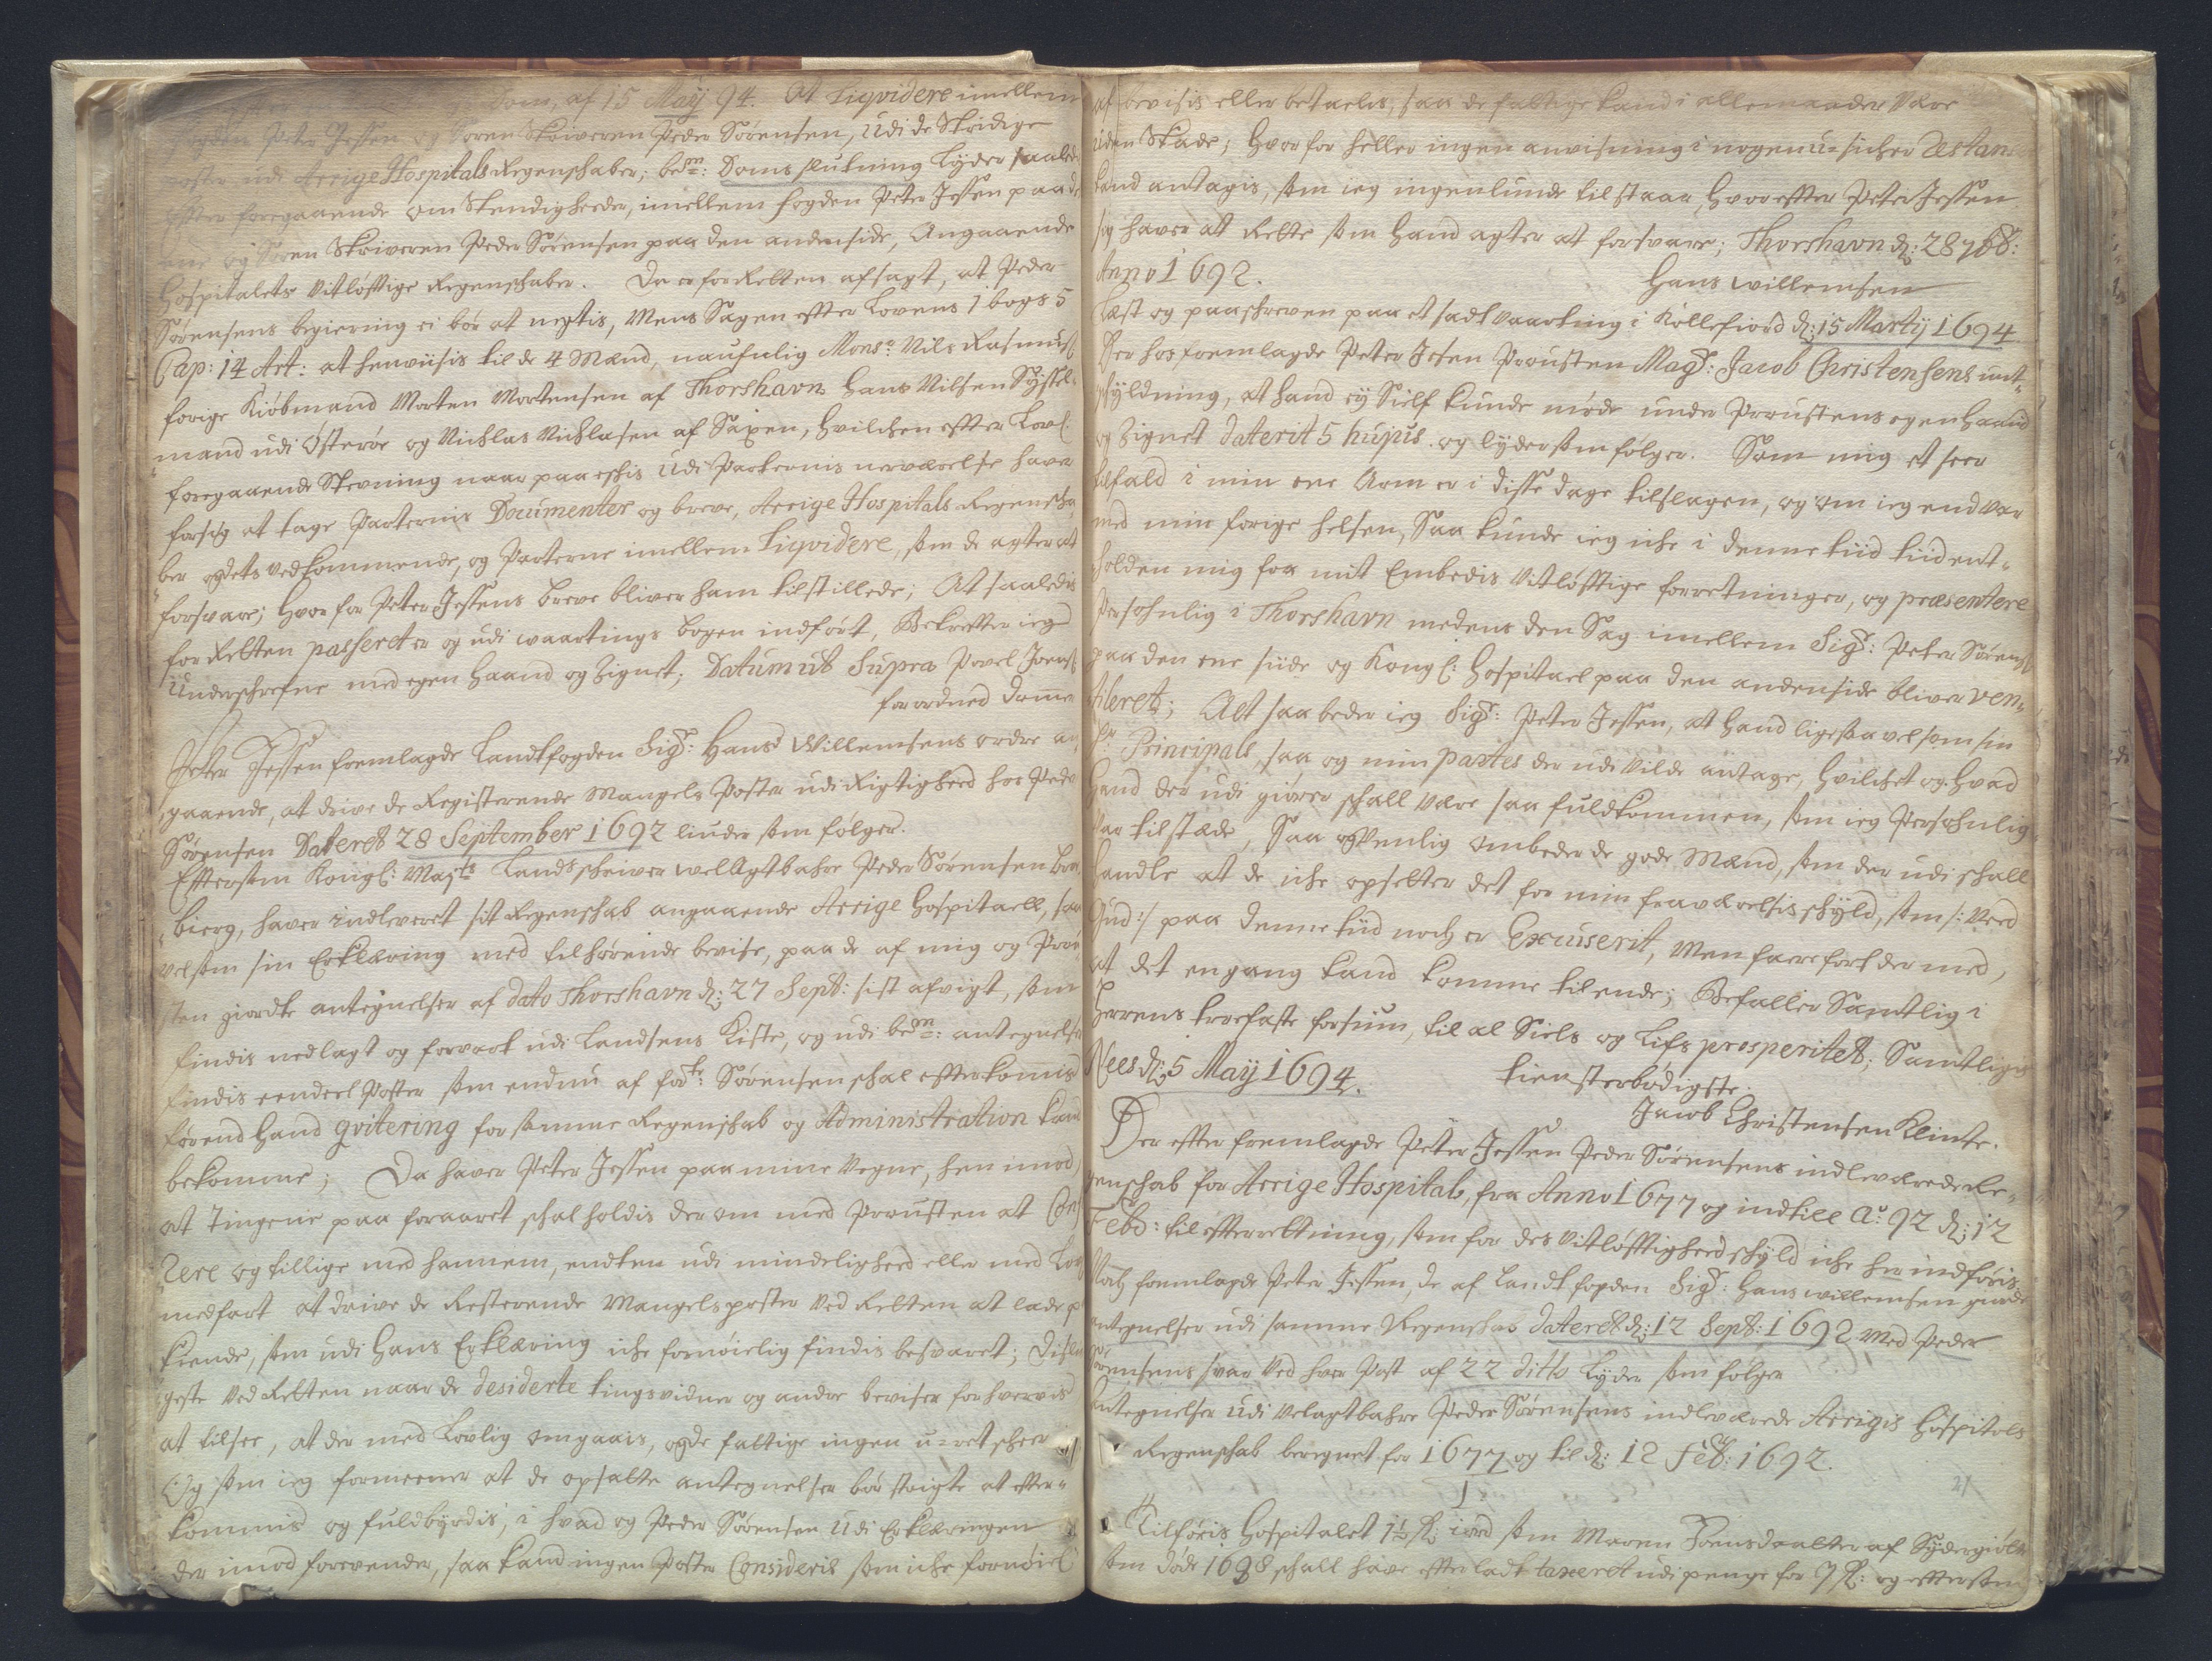 Dom, af 15 Maÿ 94. At Liqvidere imellem
Peter Jessen og Soren Skriveren Peder Sörensen, udi de Stridige
poster udi Arrige Hospitals Regenschaber; bem:te Doms slutning Lyder saaledis
Effter foregaaende omstendigheder, imellem fogden Peter Jessen paa den
ene og Soren Skriveren Peder Sörensen paa den anden side, Angaaende
Hospitalets vitlöfftige Regenschaber. Da er for Retten afsagt, at Peder
Sörensens begiering ei bör at negtis, Mens Sagen effter Lovens 1 bogs 5
Cap: 14 Art: at henviisis til de 4 Mænd, naufnlig Monsr Nils Rasmus
forige Kiöbmand Morten Mortensen af Thorshavn Hans Nilsen Syssel-
mand udi Österöe og Nichlas Nichlasen af Saxen, hvilchen effter Lovl:
foregaaende Stevning naar paa eschis udi Parternis nerværelse haver
for sig at tage Parternis Documenter og breve, Arrige Hospitals Regenscha
ber og dets vedkommende, og Parterne imellem Liqvidere, som de agter at
forsvare; hvorfor Peter Jessens breve bliver ham tilstillede; At saaledis
for Retten passeret er og udi waartings bogen indfört, Bekreffter ieg
Underschrefne med egen Haand og Zignet; Datum ut Supra Povel Joens
forordned dommer
Peter Jessen fremlagde Landtfogden Sigr: Hans Willemsens ordre an
gaaende, at drive de Resterende Mangels Poster udi Rigtighed hos Peder
Sörensen Dateret 28 September 1692 liuder som fölger.
Effterson Kongl: Majts Landschriver wellAgtbahre Peder Sörensen Born
bierg, haver indleveret sit Regenschab angaaende Arrige Hospitaell, saa
velsom sin Erklæring med tilhörende bevise, paa de af mig og Prou
sten giordte antegnelser af dato Thorshavn d: 27 Sept: sist afvigt, som
findis nedlagt og forvart udi Landsens Kiste, og udi bem:te antegnelser
findis eendeel Poster som endnu af fordte: Sörensen schal effterkommis
förend Hand qvitering for samme Regenschab og Administration kand
bekomme; Da haver Peter Jessen paa mine Vegne, hen imod
at Tingene paa foraaret schal holdis der om med Prousten at Con
rere og tillige med hannem, endten udi mindelighed eller med Lov
medfart at drive de Resterende Mangels poster ved Retten at lade p
kiende, som udi Hans Erklæring iche fornöielig findis besvaret; Disli
geste ved Retten naar de desiderte tingsvidner og andre beviser forhvervis
at tilsee, at der med Lovlig omgaais, og de fattige ingen u-ret scheer
Og som ieg formeener at de opsatte antegnelser bör strigte at effter-
kommis og fuldbyrdis, i hvad og Peder Sörensen udi Erklæringen
der imod forevender, saa kand ingen Poster Consideris som iche fornöiel
af bevisis eller betaelis, saa de fattige kand i allemaader være
uden Skade; Hvorfor heller ingen anvisning i nogen u-sicher Restan
kand antagis, som ieg ingenlunde tilstaar, Hvoreffter Peter Jessen
sig haver at Rette som hand agter at forsvare; Thorshavn d: 28 7br:
Anno 1692.
Hans Willemsen
Læst og paaschreven paa et sadt Vaarting i Kollefiord d: 15 Martÿ 1694.
Der hos fremlagde Peter Jesen Prousten Magr: Jacob Christensens unt-
schyldning, at hand ey Sielf kunde möde under Proustens egen Haand
og Zignet daterit 5 hujus. og lyder som fölger. Som mig et seer
tilfald i min ene Arm er i disse dage tilslagen, og om ieg end var
med min forige helsen, Saa kunde ieg iche i denne tiid tiid ent-
holden mig fra mit Embedis vitlöfftige forretninger, og præsentere
Persohnlig i Thorshavn medens den Sag imellem Sigr: Peter Sörens
paa den ene siide og Kongl: Hospitael paa den anden side bliver ven-
tileret; Alt saa beder ieg Sigr: Peter Jessen, at hand ligesaavel som sin
Hr Principals, saa og min partes der udi vilde antage, hvilchet og hvad
Hand der udi giörer schall være saa fuldkommen, som ieg Persohnlig
var tilstæde, Saa og venlig ombeder de gode Mænd, som der udi schall
handle at de iche opsetter det for min fraværelsis schyld, som /: veed
Gud :/ paa denne tiid noch er Excuserit, men fare fort der med,
at det engang kand komme til ende; Befaller Samtlig i
Herrens troefaste forsiun, til al Siels og Lifs prosperitet; Samtligis
Nees d: 5 Maÿ 1694.
tiensterbödigste
Jacob Christensen Klinte.
Der effter fremlagde Peter Jessen Peder Sörensens indleverede Re-
genschab for Arrige Hospital, fra Anno 1677 og indtill Ao: 92 d: 12
Febr: til effterretning, som for des Vitlöfftigheed schyld iche her indföris
Noch fremlagde Peter Jessen, de af Landtfogden Sigr: Hans willemsen giorde
antegnelser udi samme Regenschab dateret d: 12 Sept: 1692 med Peder
Sörensens svar ved hver Post af 22 ditto Lyder som fölger
Antegnelser udi velagtbahre Peder Sörensens indleverede Arrigis Hospitals
Regenschab beregnet for 1677 og til d: 12 Feb: 1692.
1
21
Tilföris Hospitalet 1½ R: iord som Maren Joensdaatter af Sydergiöte
som döde 1698 schall have effter ladt taxeret udi penge for 7 R: og effterson